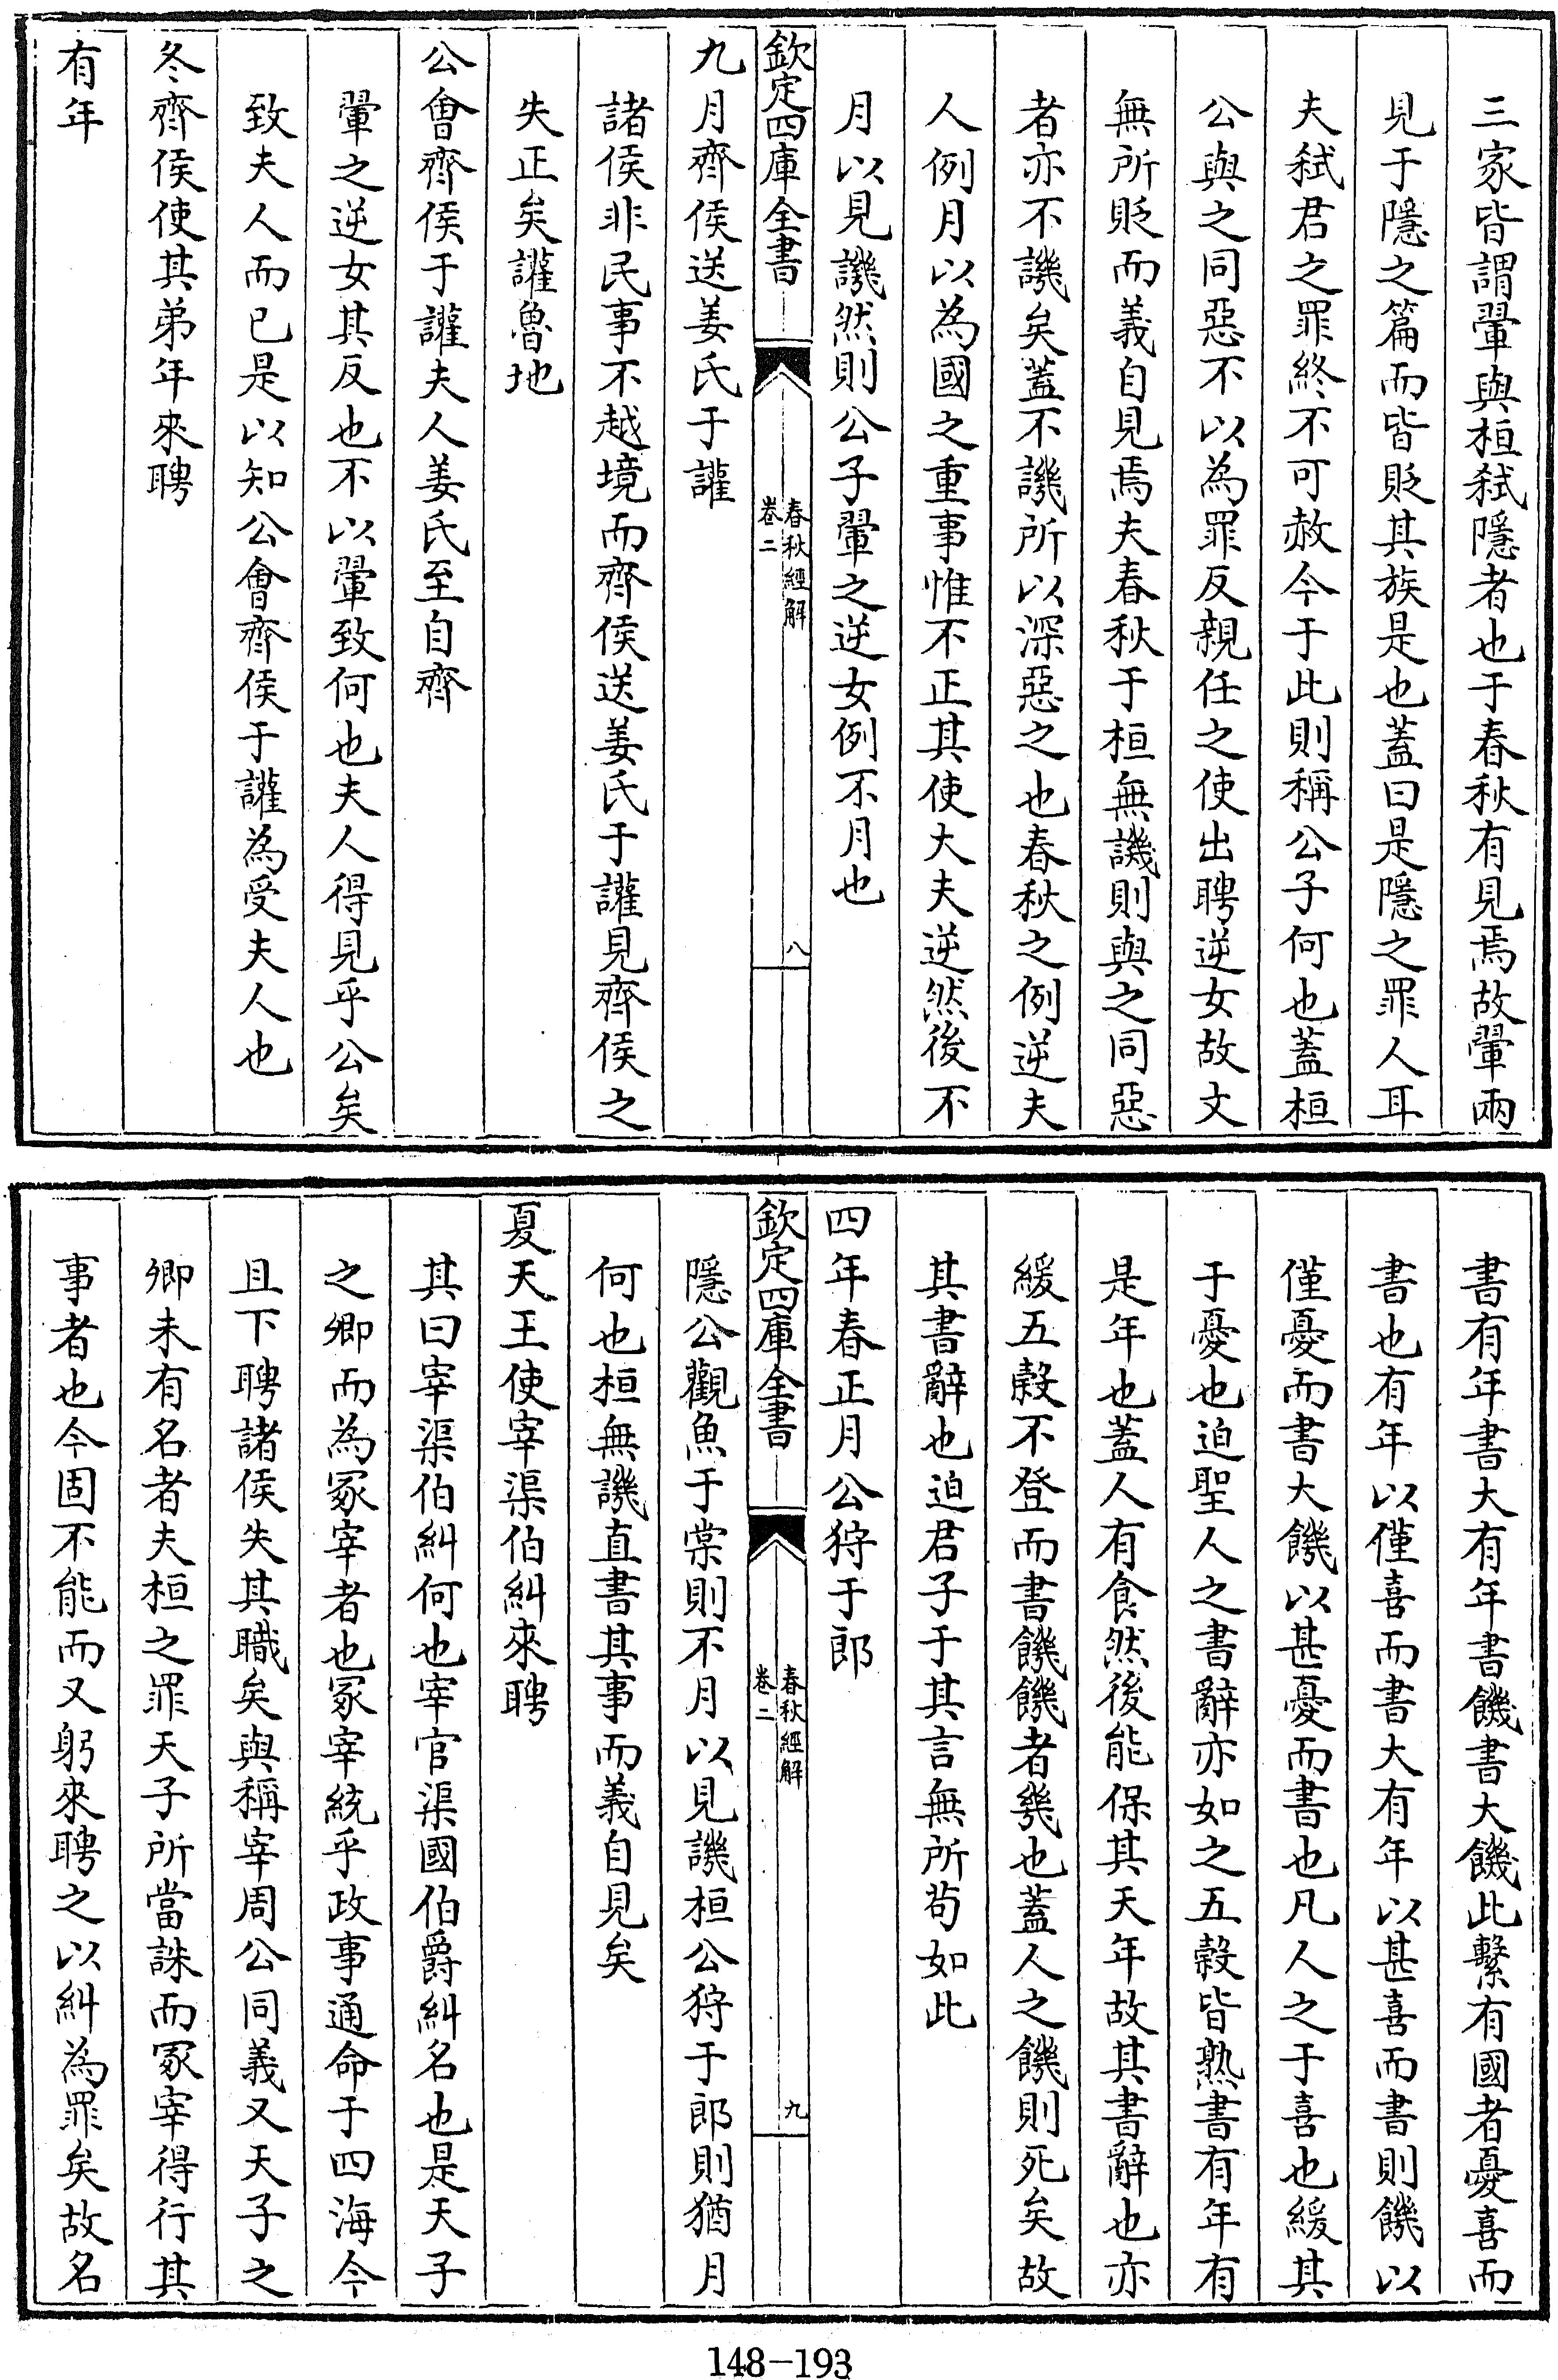 三家皆謂翬與桓弑隱者也于春秋有見焉故翬兩
見于隱之篇而皆貶其族是也蓋曰是隱之罪人耳
夫弑君之罪終不可赦今于此則稱公子何也蓋桓
公與之同惡不以為罪反親任之使出聘逆女故文
無所貶而義自見焉夫春秋于桓無譏則與之同惡
者亦不譏矣蓋不譏所以深惡之也春秋之例逆夫
人例月以為國之重事惟不正其使大夫逆然後不
月以見譏然則公子翬之逆女例不月也
欽定四庫全書
春秋經解
卷二
八
九月齊侯送姜氏于讙
諸侯非民事不越境而齊侯送姜氏于讙見齊侯之
失正矣讙魯地
公會齊侯于讙夫人姜氏至自齊
翬之逆女其反也不以翬致何也夫人得見乎公矣
致夫人而已是以知公會齊侯于讙為受夫人也
冬齊侯使其弟年來聘
有年
書有年書大有年書饑書大饑此繫有國者憂喜而
書也有年以僅喜而書大有年以甚喜而書則饑以
僅憂而書大饑以甚憂而書也凡人之于喜也緩其
于憂也迫聖人之書辭亦如之五穀皆熟書有年有
是年也蓋人有食然後能保其天年故其書辭也亦
緩五穀不登而書饑饑者幾也蓋人之饑則死矣故
其書辭也迫君子于其言無所苟如此
四年春正月公狩于郎
欽定四庫全書
春秋經解
卷二
九
隱公觀魚于棠則不月以見譏桓公狩于郎則猶月
何也桓無譏直書其事而義自見矣
夏天王使宰渠伯糾來聘
其曰宰渠伯糾何也宰官渠國伯爵糾名也是天子
之卿而為冢宰者也冢宰統乎政事通命于四海今
且下聘諸侯失其職矣與稱宰周公同義又天子之
卿未有名者夫桓之罪天子所當誅而冢宰得行其
事者也今固不能而又躬來聘之以糾為罪矣故名
148-193